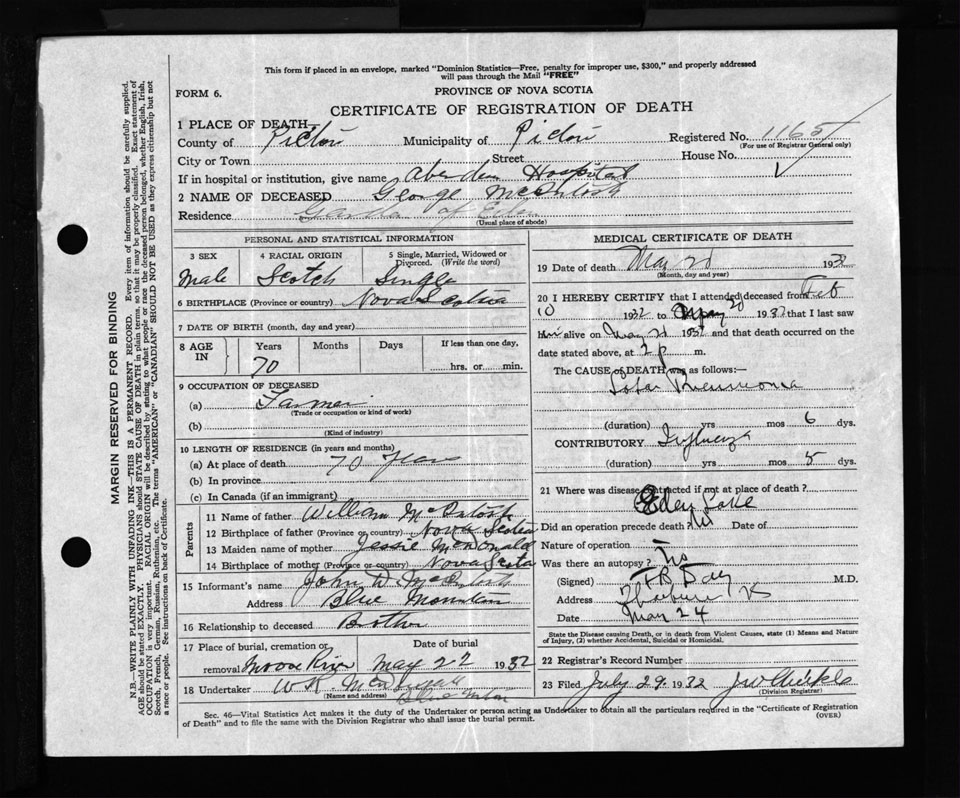 This form if placed in an envelope, marked "Dominion Statistics—Free, penalty for improper use, $300," and properly addressed
will pass through the Mail "FREE"
FORM 6.
PROVINCE OF NOVA SCOTIA
CERTIFICATE OF REGISTRATION OF DEATH
1 PLACE OF DEATH—
County of Pictou Municipality of Pictou Registered No.
(For use of Registrar General only)
City or Town Street House No.
If in hospital or institution, give name Aberdeen Hospital
2 NAME OF DECEASED George McIntosh
Residence Garden of Eden
(Usual place of abode)
PERSONAL AND STATISTICAL INFORMATION
3 SEX 4 RACIAL ORIGIN 5 Single, Married, Widowed or Divorced. (Write the word)
Male Scotch Single
6 BIRTHPLACE (Province or country) Nova Scotia
7 DATE OF BIRTH (month, day and year)
8 AGE IN Years Months Days If less than one day.
70 hrs. or min.
9 OCCUPATION OF DECEASED
(a) Farmer
(Trade or occupation or kind of work)
(b)
(Kind of industry)
10 LENGTH OF RESIDENCE (in years and months)
(a) At place of death 70 years
(b) In province
(c) In Canada (if an immigrant)
Parents
11 Name of father William McIntosh
12 Birthplace of father (Province or country) Nova Scotia
13 Maiden name of mother Jessie McDonald
14 Birthplace of mother (Province or country) Nova Scotia
15 Informant's name John D. McIntosh
Address Blue Mountain
16 Relationship to deceased Brother
17 Place of burial, cremation or removal Date of burial
Moose River May 22 1932
18 Undertaker W R
(Name and address) Blue Mtn
MEDICAL CERTIFICATE OF DEATH
19 Date of death May 1932
(Month, day and year)
20 I HEREBY CERTIFY that I attended deceased from Feb
1932 to May 20 1932 that I last saw
him alive on May 1932 and that death occurred on the
date stated above, at 2 p m.
The CAUSE of DEATH was as follows:—
Lobar Pneumonia
(duration) yrs mos 6 dys.
CONTRIBUTORY Influenza
(duration) yrs mos 5 dys.
21 Where was disease contracted if not at place of death?
Eden Lake
Did an operation precede death? Date of
Nature of operation
Was there an autopsy?
(Signed) M.D.
Address Thorburn NS
Date May 24
State the Disease causing Death, or in death from Violent Causes, state (1) Means and Nature
of Injury, (2) whether Accidental, Suicidal or Homicidal.
22 Registrar's Record Number
23 Filed July 29 1932
(Division Registrar)
Sec. 46—Vital Statistics Act makes it the duty of the Undertaker or person acting as Undertaker to obtain all the particulars required in the "Certificate of Registration
of Death" and to file the same with the Division Registrar who shall issue the burial permit.
(OVER)
MARGIN RESERVED FOR BINDING
N.B.—WRITE PLAINLY WITH UNFADING INK—THIS IS A PERMANENT RECORD. Every item of information should be carefully supplied.
AGE should be stated EXACTLY. PHYSICIANS should STATE CAUSE OF DEATH in plain terms, so that it may be properly classified. Exact statement of
OCCUPATION is very important. RACIAL ORIGIN will be described by stating to what people or race the deceased person belonged, whether English, Irish,
Scotch, French, German, Russian, Ruthenian, etc. The terms "AMERICAN" or "CANADIAN" SHOULD NOT BE USED as they express citizenship but not
a race or people. See instructions on back of Certificate.